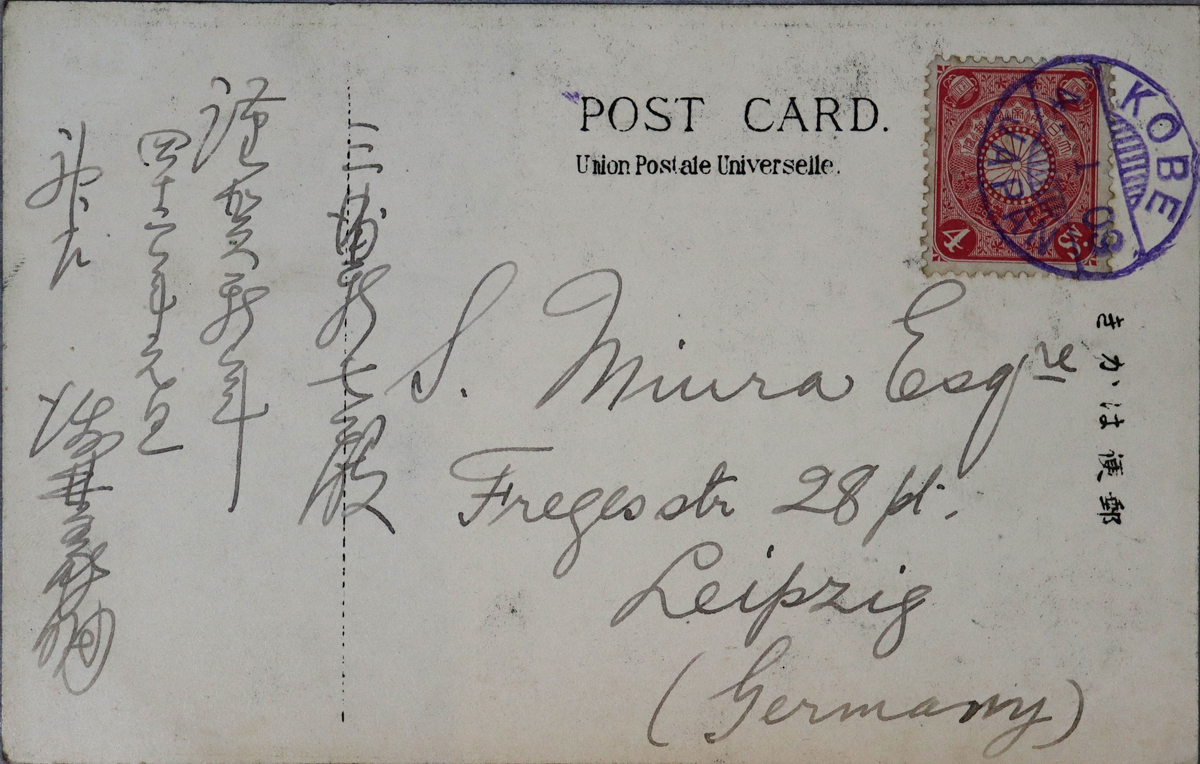 POST CARD.
Union Postale Universelle.
KOBE
JAPAN
4
S.
きかは便郵
S. Miura Esqre
Fregesstr 28 pt.
Leipzig
(Germany)
三浦新七殿
謹賀新年
四十二年元旦
神戸